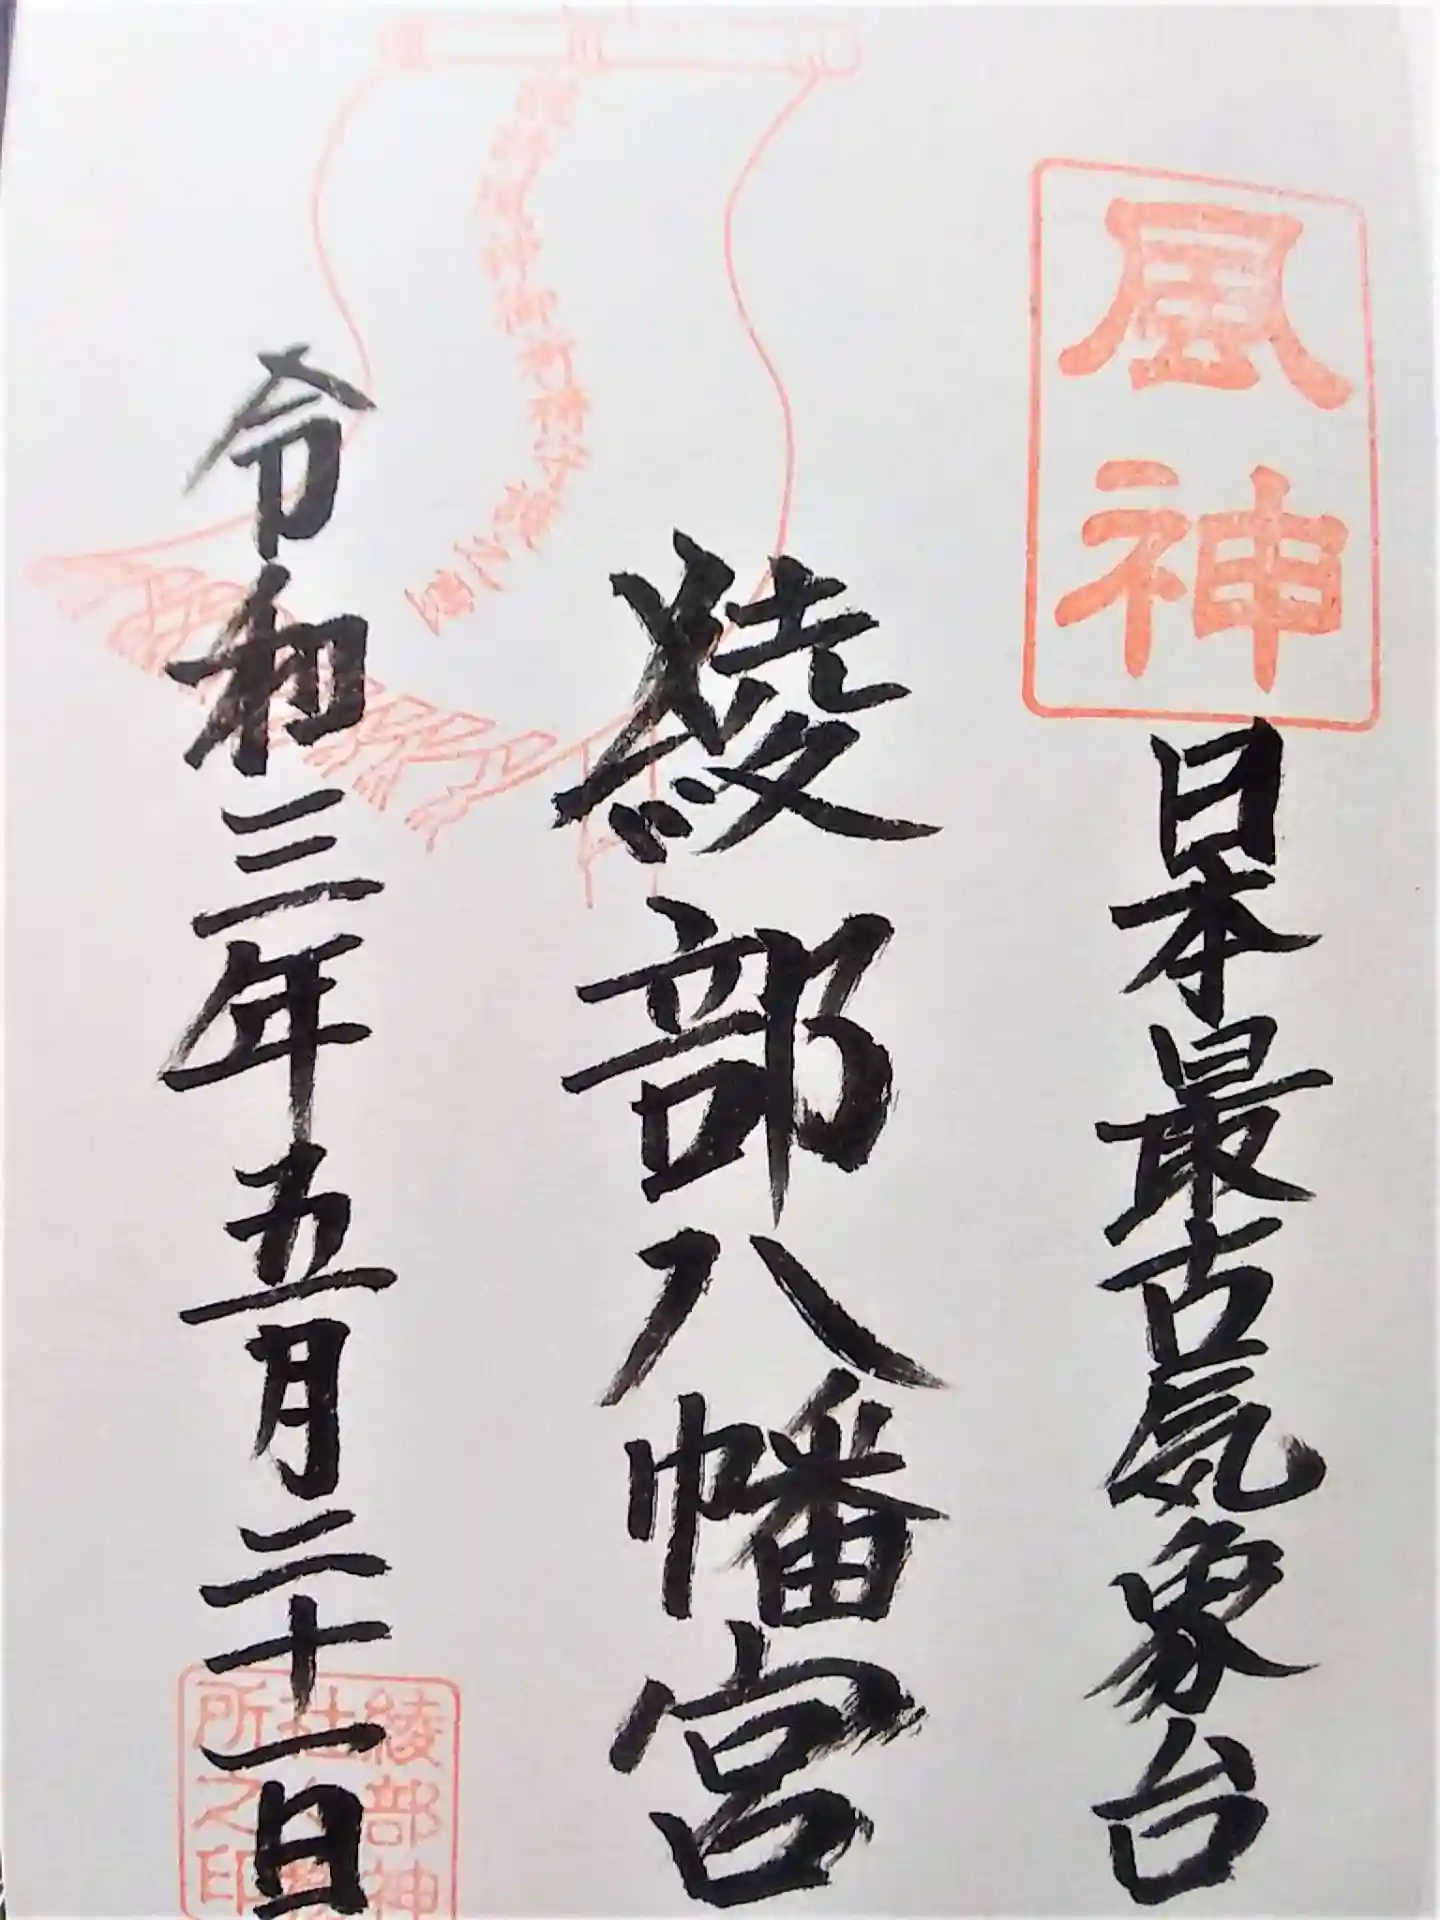 風神
日本最古気象台
綾部八幡宮
令和三年五月二十一日
綾部神
社
所之印